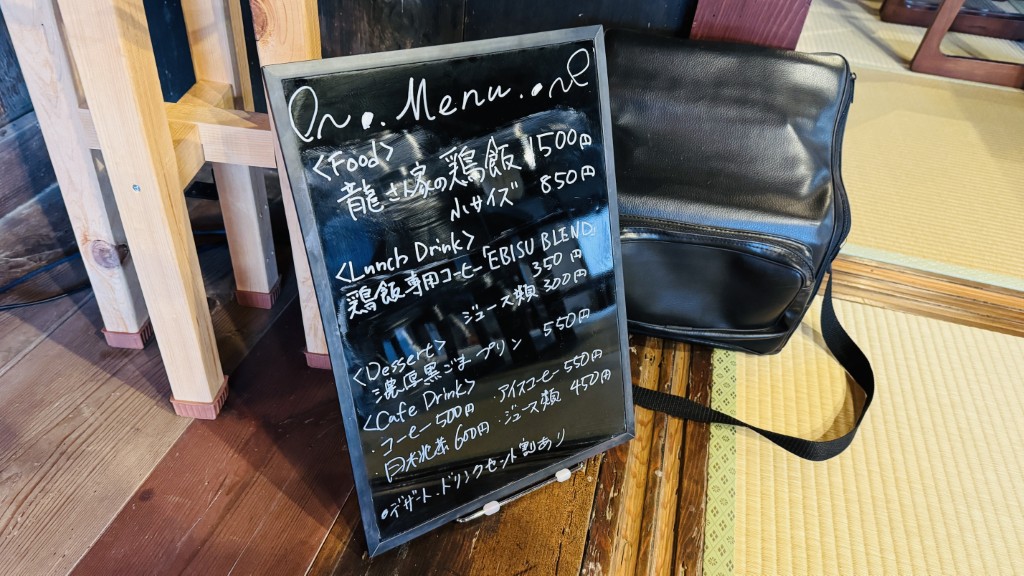 Menu
<Food>
龍さん家の鶏飯 1500円
小サイズ 850円
<Lunch Drink>
鶏飯専用コーヒー「EBISU BLEND」
350円
ジュース類 300円
<Dessert>
濃厚黒ごまプリン 550円
<Cafe Drink>
・コーヒー 500円 ・アイスコーヒー 550円
・白桃茶 600円 ・ジュース類 450円
・デザート・ドリンクセット割あり